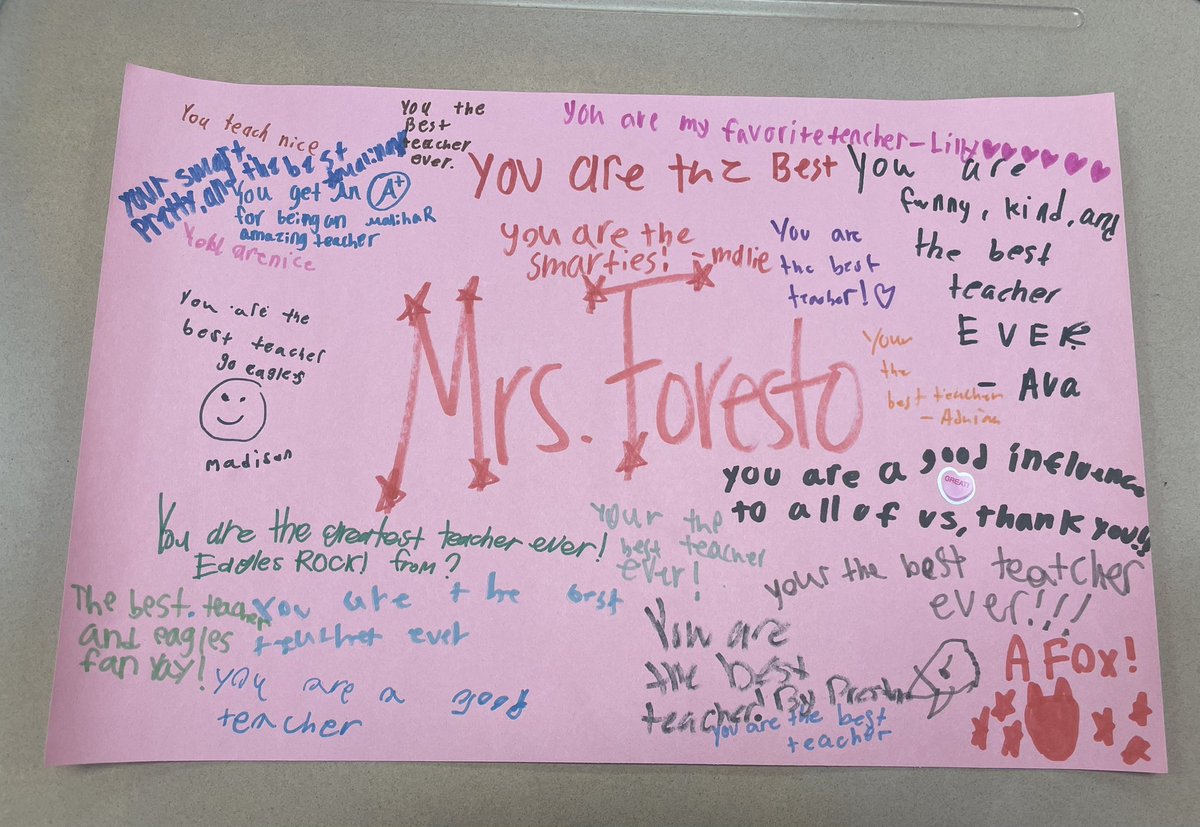 You teach nice
your smart,
pretty, and the best
You get an A+
for being an
amazing teacher
You the
Best
teacher
ever.
you are my favorite teacher - Lilly
You are the Best
You are
funny, kind, and
the best
teacher
EVER
- Ava
You are nice
you are the
smarties!
You are
the best
teacher!
You are the
best teacher
go eagles
madison
Mrs. Foresto
Your
the
best teacher
- Adrian
you are a good influence
GREAT!
to all of us, thank you!!
You are the greatest teacher ever!
Eagles ROCK! from?
your the
best teacher
ever!
your the best teatcher
ever!!!
The best. teacher
and eagles
fan Yay!
You are the best
teacher ever
you are a good
teacher
You are
the best
teacher! By
you are the best
teacher
A Fox!